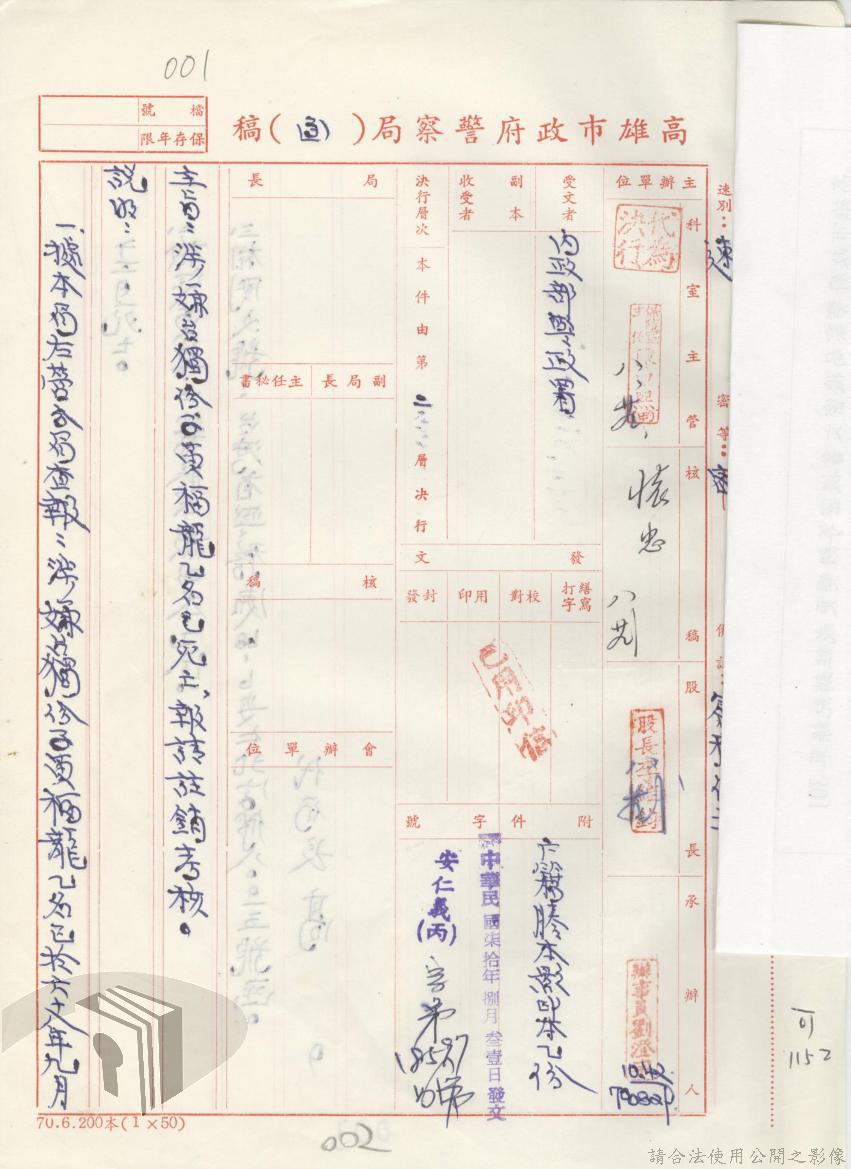 001
檔號
保存年限
高雄市政府警察局(函)稿
速別：速
密等：密
主辦單位
科室主管
代為決行
核稿
懷忠
股長
承辦人
受文者
內政部警政署
副本收受者
決行層次
本件由第二層決行
發文
繕寫打字
校對
用印
封發
已用印信
附件
戶籍謄本影印本乙份
字號
中華民國柒拾年捌月叁壹日發文
安仁義(丙)
字第
號
局長
副局長
主任秘書
核稿
會辦單位
主旨：涉嫌台獨份子黃福龍乙名已死亡，報請註銷考核。
說明：
一、據本局左營分局查報：涉嫌台獨份子黃福龍乙名已於六十八年九月
70.6.200本(1×50)
002
1152
請合法使用公開之影像